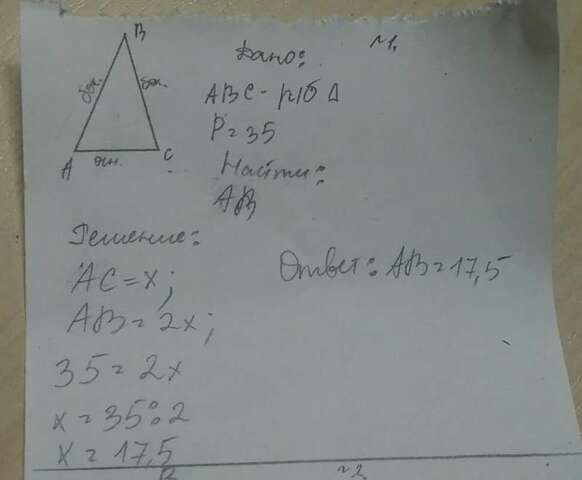 №1.
B
Дано:
бок.
бок.
ABC - р/б Δ
P = 35
A
осн.
C
Найти:
AB
Решение:
AC = x;
Ответ: AB = 17,5
AB = 2x;
35 = 2x
x = 35 : 2
x = 17,5
B
№2